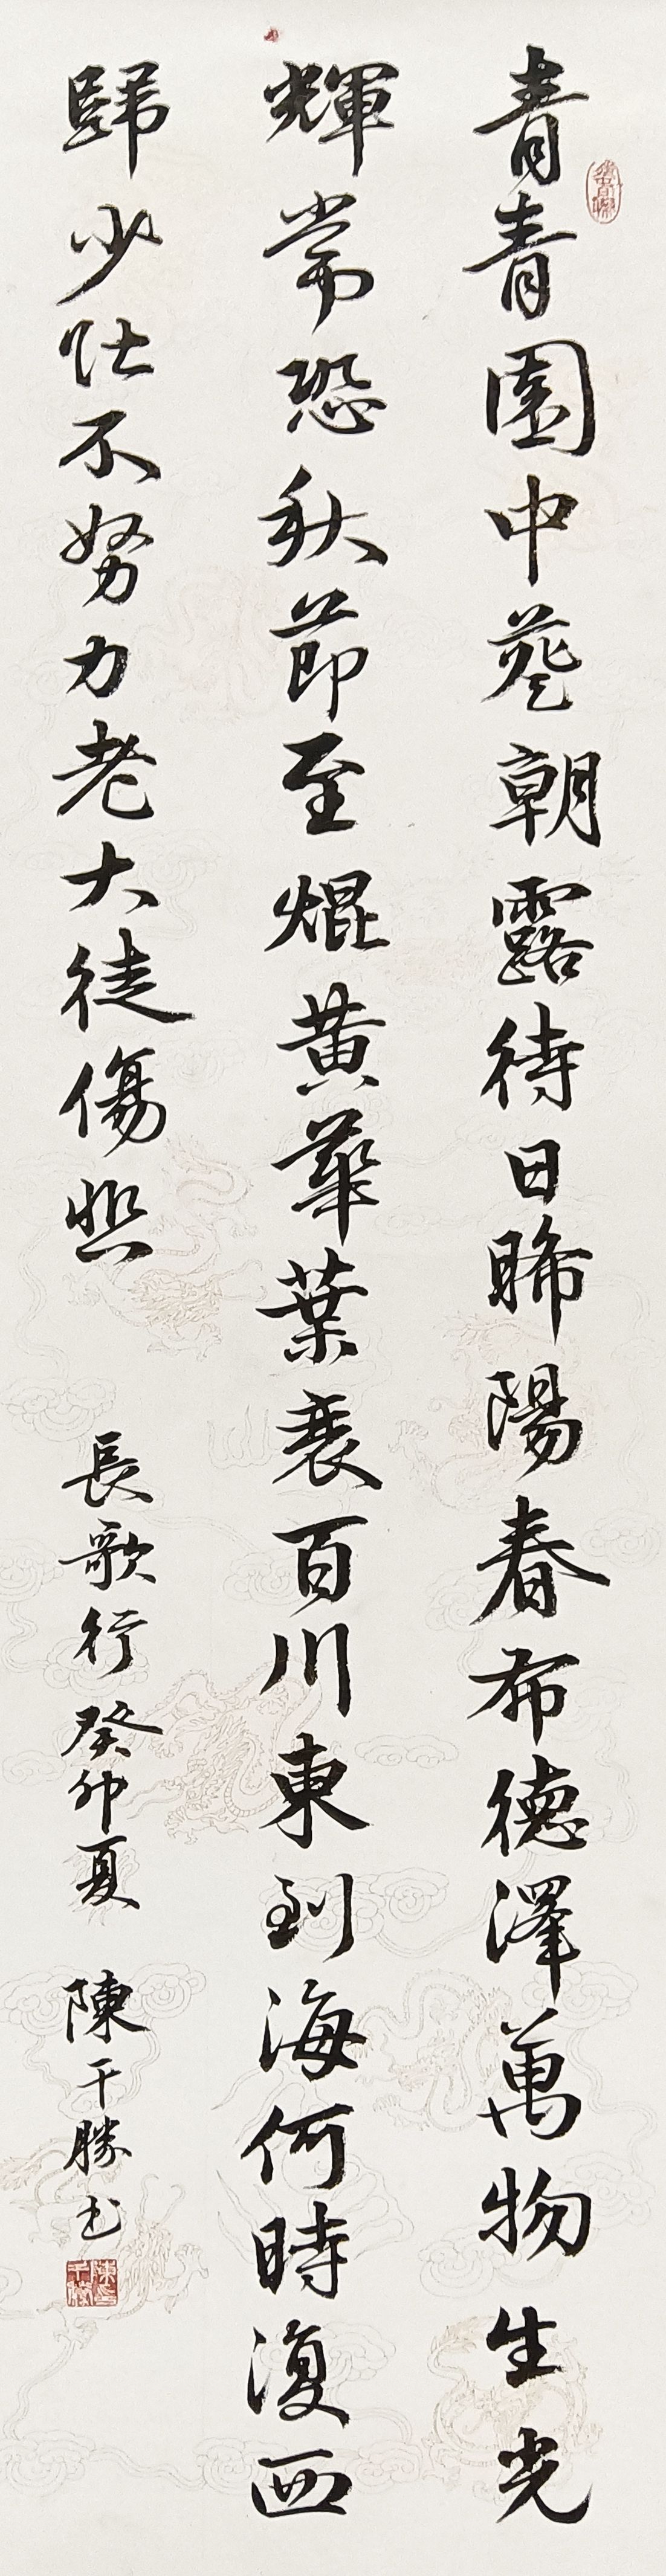 青青園中葵朝露待日晞陽春布德澤萬物生光
輝常恐秋節至焜黃華葉衰百川東到海何時復西
歸少壯不努力老大徒傷悲 長歌行 癸卯夏 陳千勝书